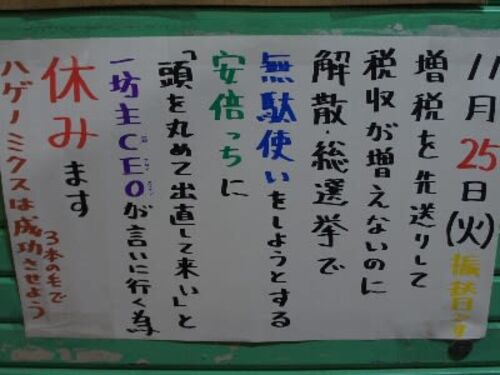 11月25日(火)振替日
増税を先送りして
税収が増えないのに
解散・総選挙で
無駄使いをしようとする
安倍っちに
「頭を丸めて出直して来い」と
一坊主CEOが言いに行く為
休みます
3本の毛で
ハゲノミクスは成功させよう